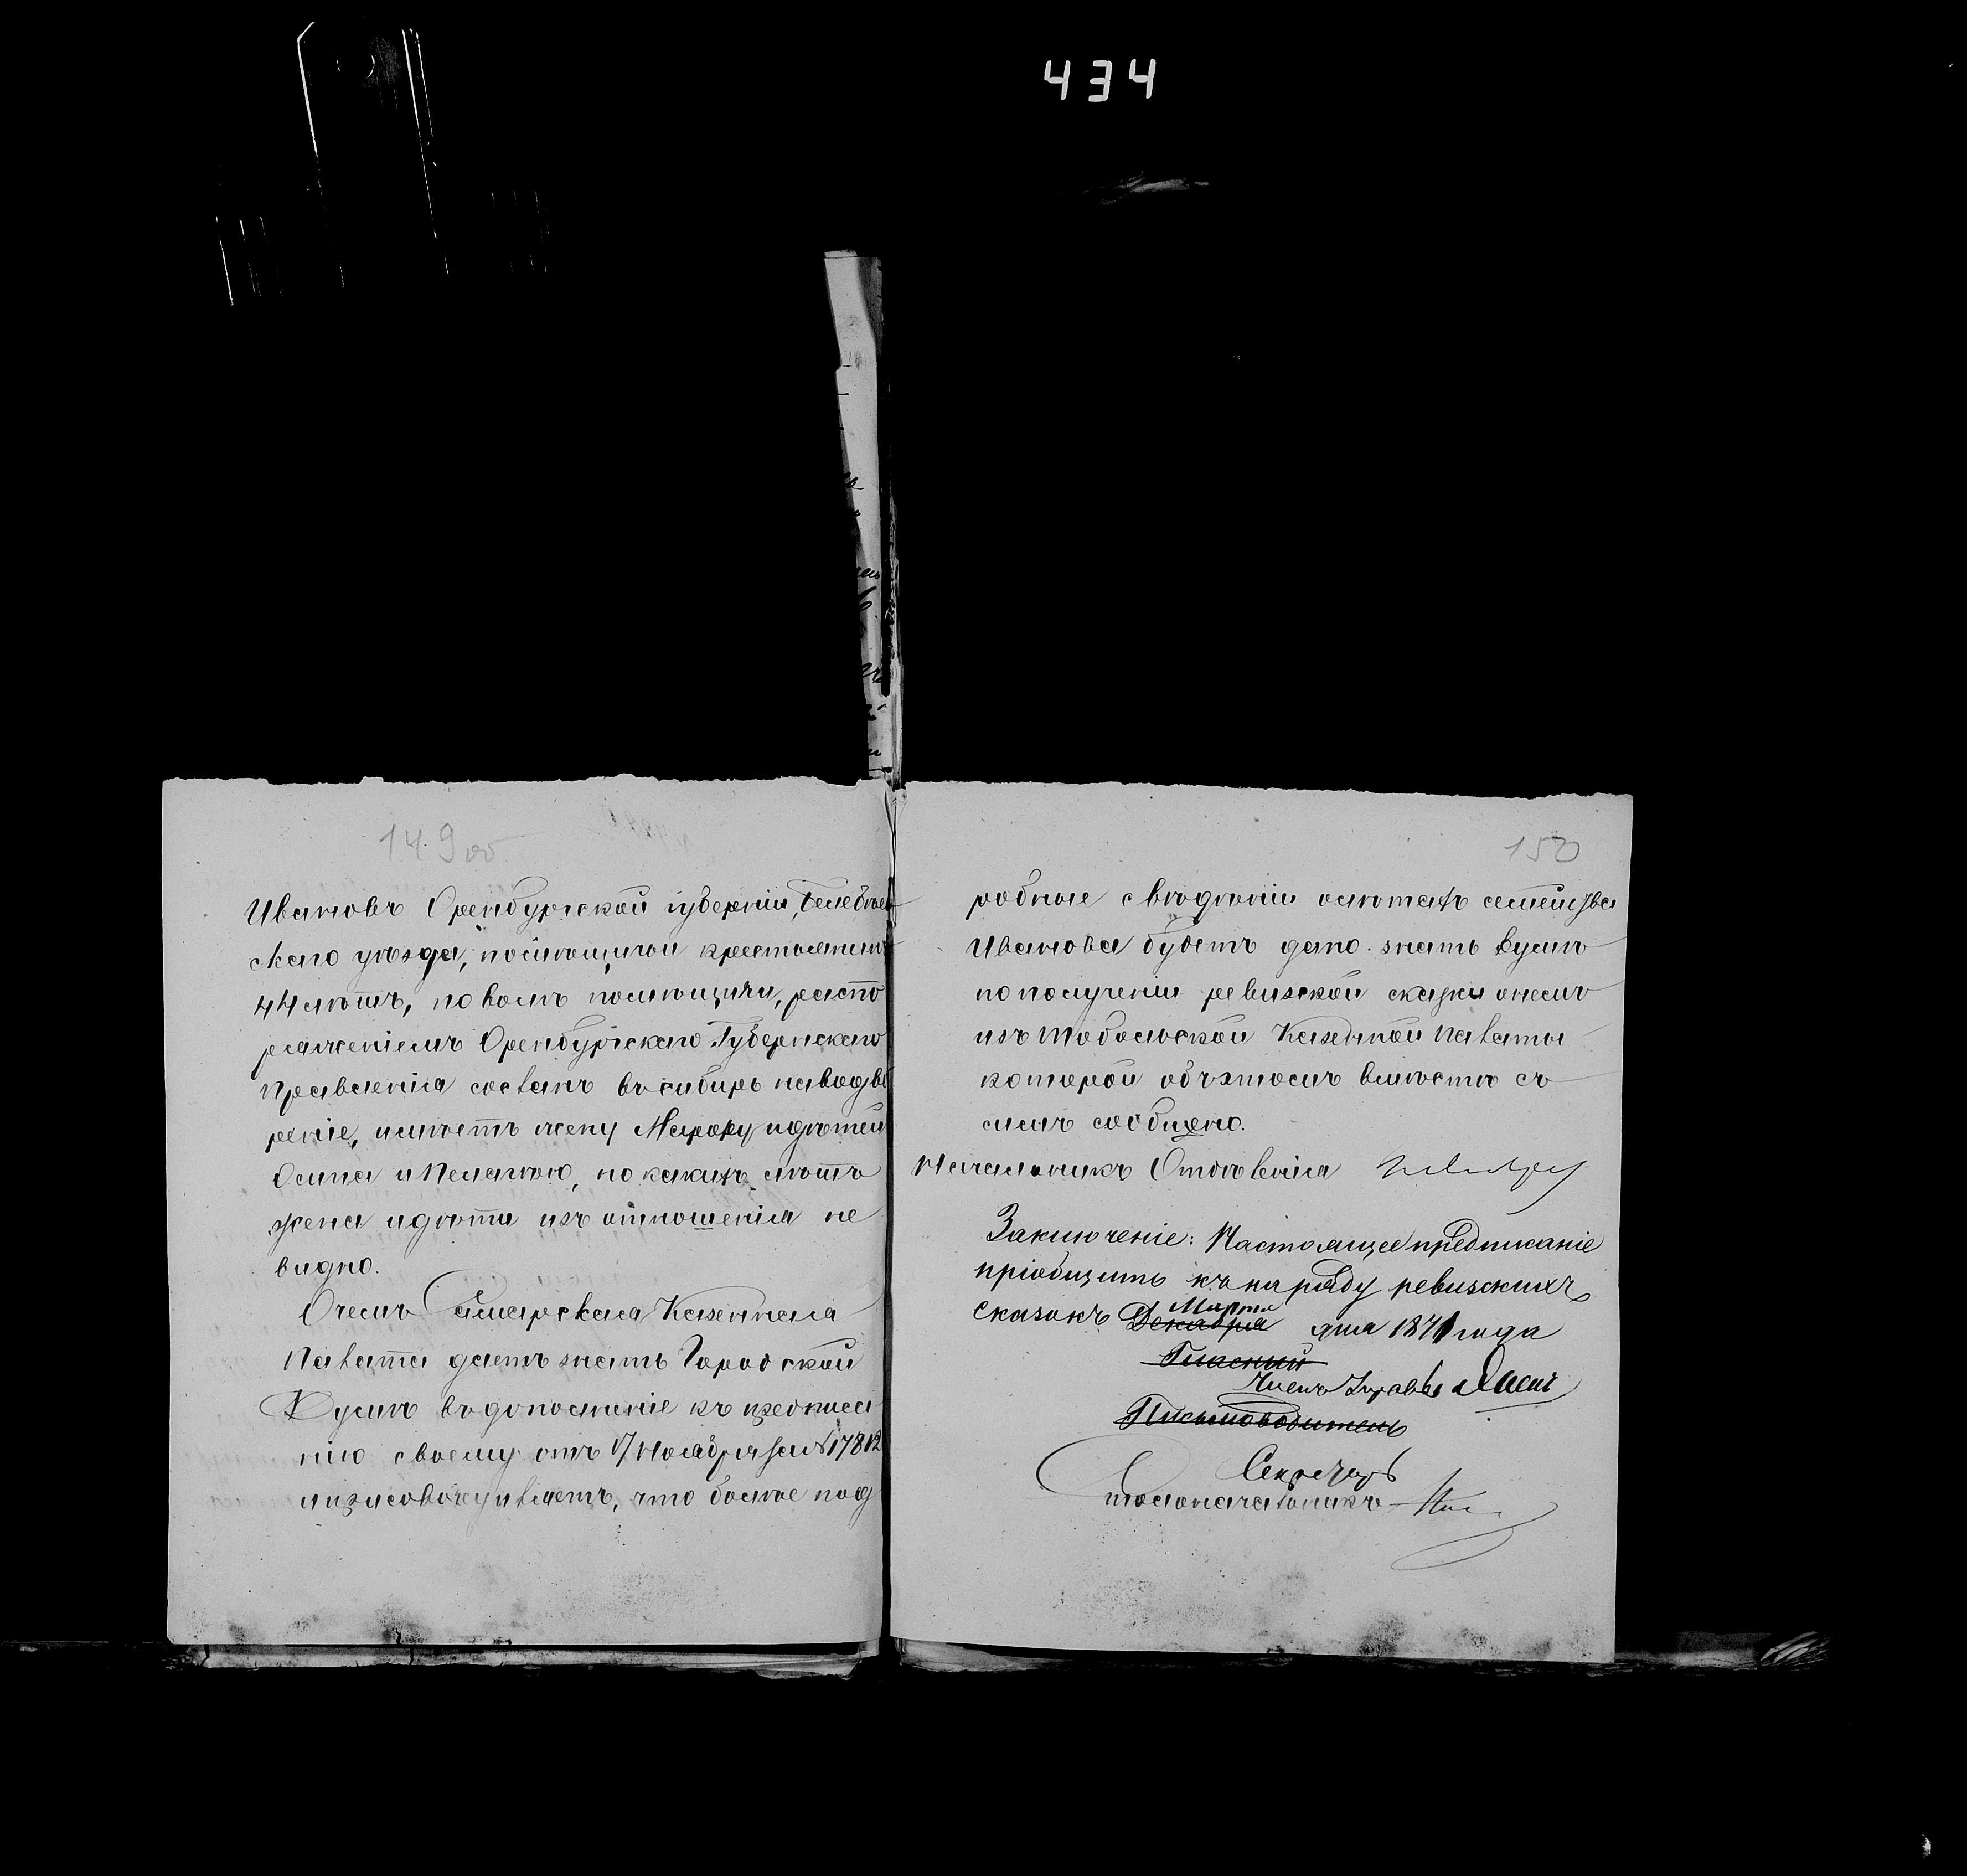 434
149 об
Ивановъ Оренбургской губерніи, Белебѣев
скаго уѣзда, помѣщичій крестьянинъ
44 лѣтъ, по волѣ помѣщика, распо
ряженіемъ Оренбургскаго Губернскаго
Правленія сосланъ въ сибирь на водво
реніе, имѣетъ жену Марфу и дѣтей
Осипа и Пелагею, но какихъ лѣтъ
жена и дѣти изъ отношенія не
видно.
О чемъ Самарская Казенная
Палата даетъ знать Городской
Думѣ въ дополненіе къ предписа
нію своему отъ 17 Ноября за № 17812
и присовокупляетъ, что болѣе под
150
робные свѣдѣнія о лѣтахъ семейства
Иванова будетъ дано знать Думѣ
по полученіи ревизской сказки о немъ
изъ Тобольской Казенной Палаты
которой объ этомъ вмѣстѣ съ
симъ сообщено.
Начальникъ Отдѣленія
Заключеніе: Настоящее предписаніе
пріобщить къ наряду ревизскихъ
сказокъ Декабря Марта дня 1871 года
Гласный
Членъ Управы
Письмоводитель
Секретарь
Столоначальникъ